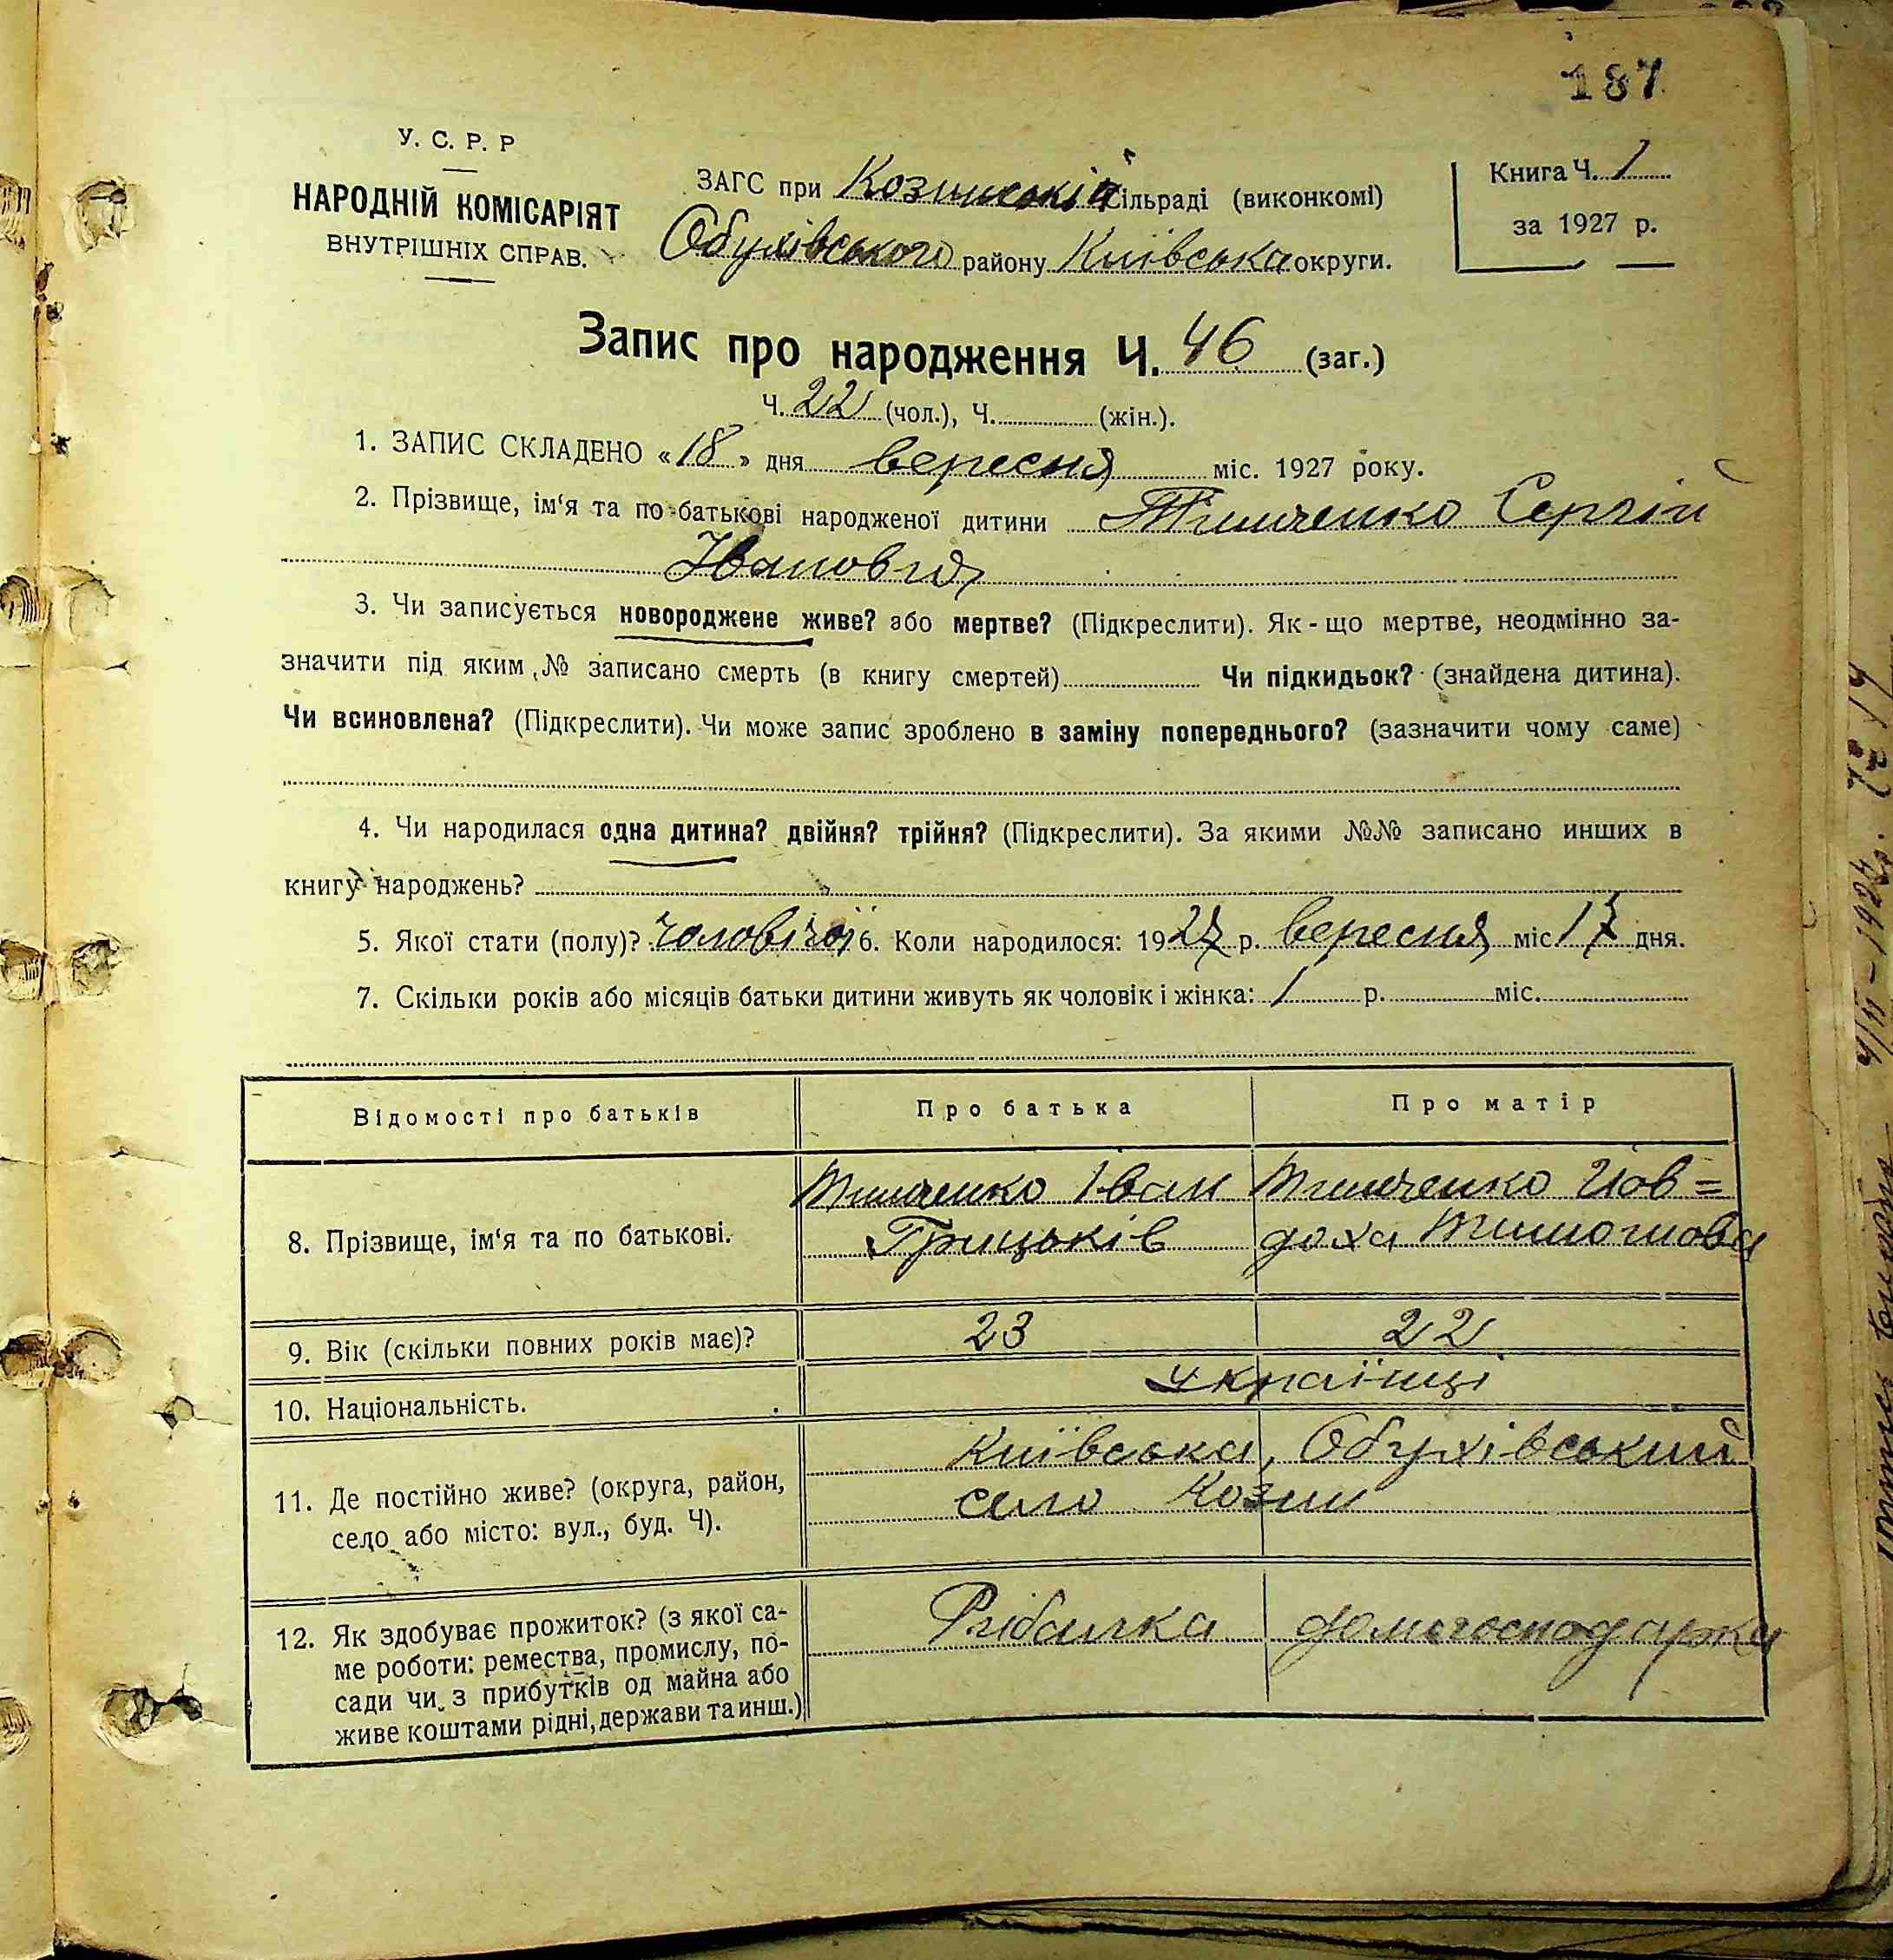 187
У. С. Р. Р
НАРОДНІЙ КОМІСАРІЯТ
ВНУТРІШНІХ СПРАВ.
ЗАГС при Козинській сільраді (виконкомі)
Обухівського району Київська округи.
Книга Ч. 1
за 1927 р.
Запис про народження Ч. 46 (заг.)
Ч. 22 (чол.), Ч. (жін.).
1. ЗАПИС СКЛАДЕНО «18» дня вересня міс. 1927 року.
2. Прізвище, ім‘я та по-батькові народженої дитини Тимченко Сергій
Іванович
3. Чи записується новороджене живе? або мертве? (Підкреслити). Як-що мертве, неодмінно за-
значити під яким № записано смерть (в книгу смертей) Чи підкидьок? (знайдена дитина).
Чи всиновлена? (Підкреслити). Чи може запис зроблено в заміну попереднього? (зазначити чому саме)
4. Чи народилася одна дитина? двійня? трійня? (Підкреслити). За якими №№ записано инших в
книгу народжень?
5. Якої стати (полу)? чоловічої 6. Коли народилося: 1927 р. вересня міс 17 дня.
7. Скільки років або місяців батьки дитини живуть як чоловік і жінка: 1 р. міс.
Відомості про батьків Про батька Про матір
8. Прізвище, ім‘я та по батькові.
Тимченко Іван
Грицьків
Тимченко Йов=
доха Тимошова
9. Вік (скільки повних років має)? 23 22
10. Національність. українці
11. Де постійно живе? (округа, район,
село або місто: вул., буд. Ч).
Київська, Обухівський
село Козин
12. Як здобуває прожиток? (з якої са-
ме роботи: ремества, промислу, по-
сади чи з прибутків од майна або
живе коштами рідні, держави та инш.)
Рибалка
домогосподарка